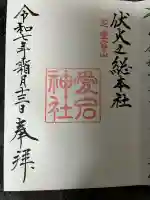 伏火之総本社
愛宕神社
令和七年霜月十三日
奉拝